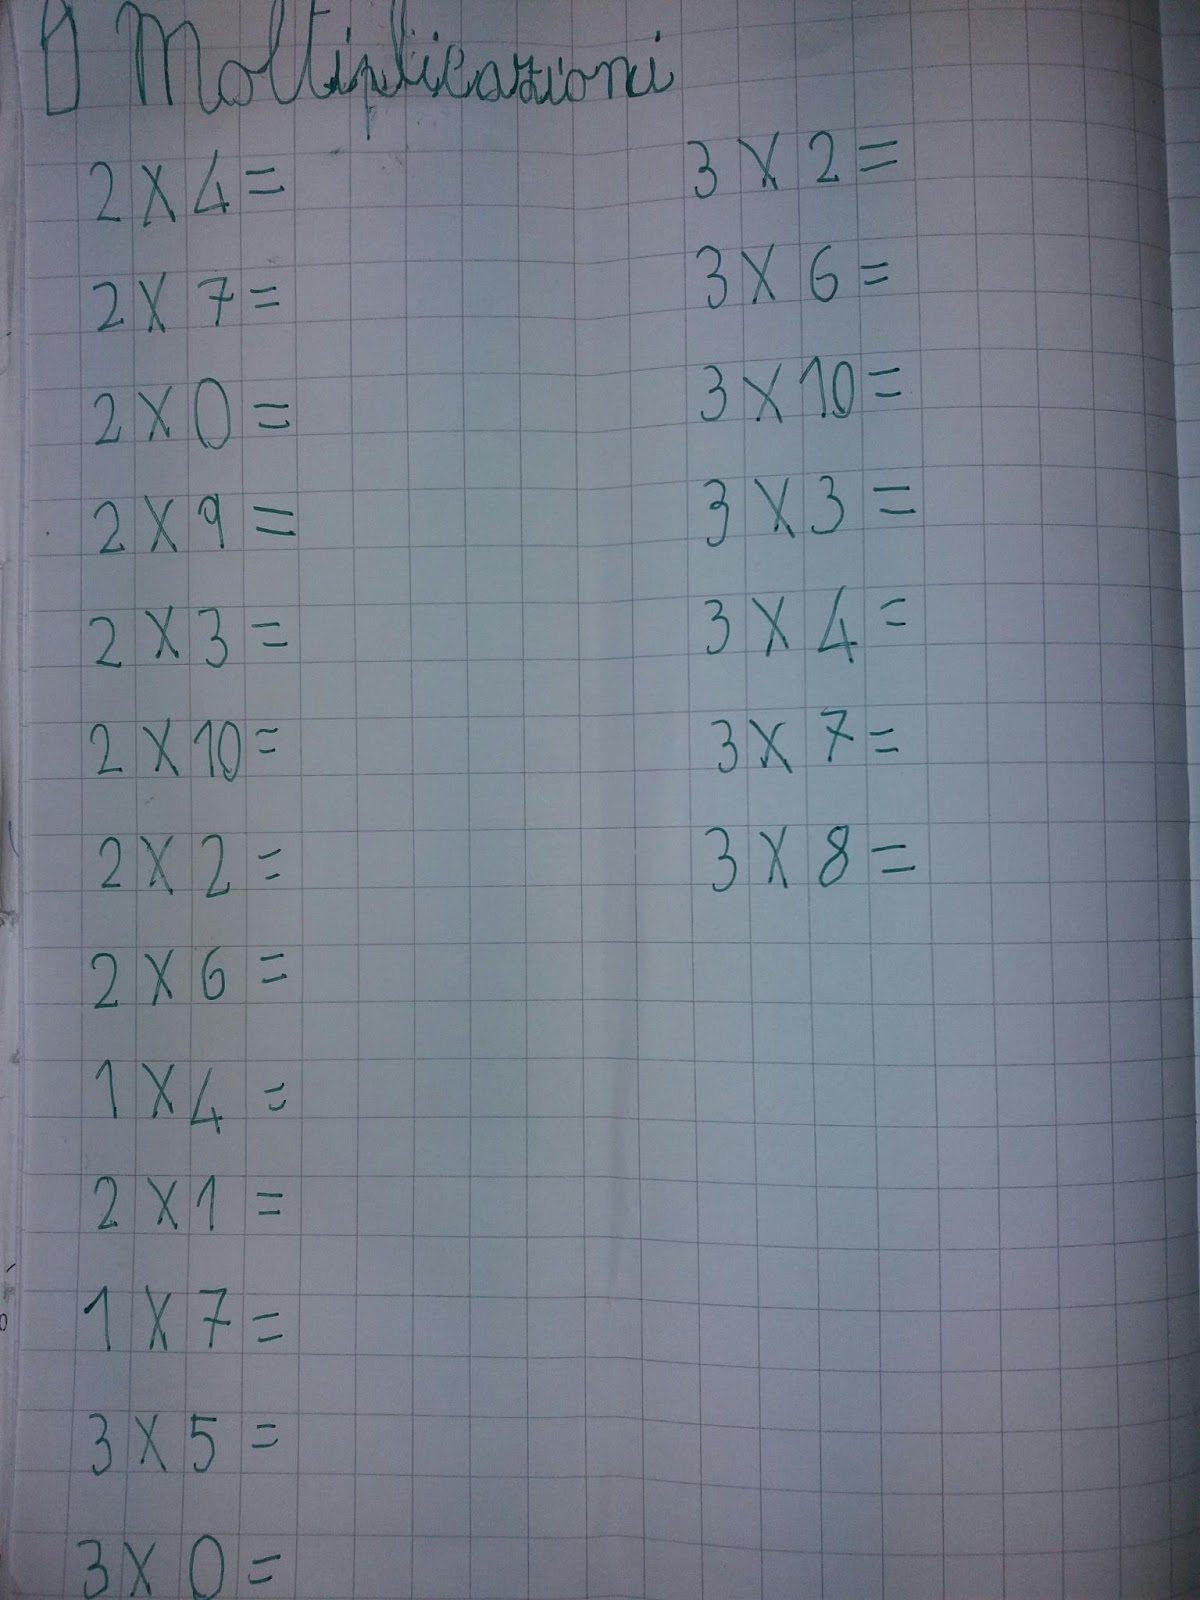 Moltiplicazioni
2 X 4 =
2 X 7 =
2 X 0 =
2 X 9 =
2 X 3 =
2 X 10 =
2 X 2 =
2 X 6 =
1 X 4 =
2 X 1 =
1 X 7 =
3 X 5 =
3 X 0 =
3 X 2 =
3 X 6 =
3 X 10 =
3 X 3 =
3 X 4 =
3 X 7 =
3 X 8 =